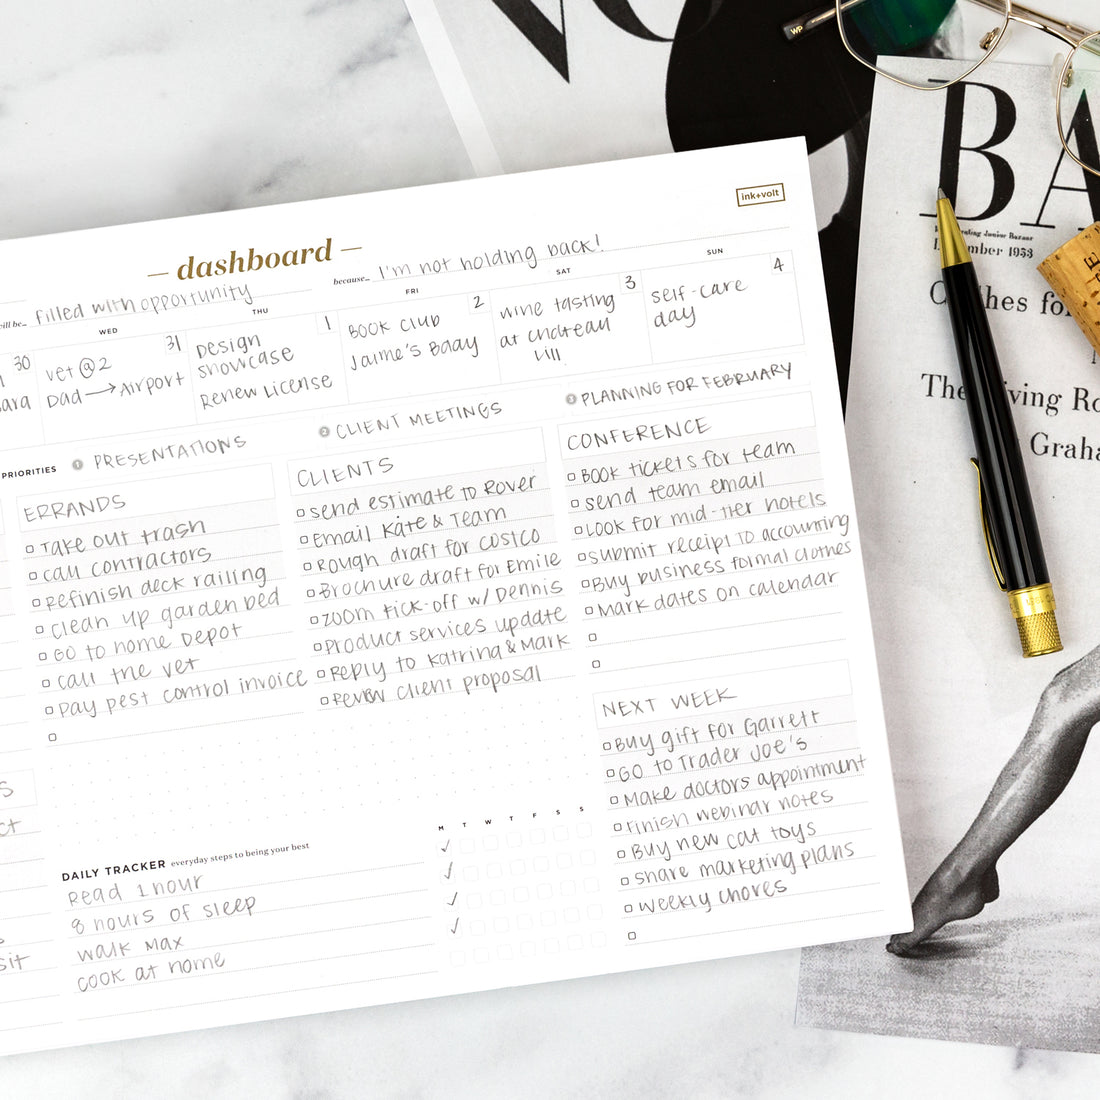 WP
BA
December 1953
ink+volt
— dashboard —
will be_ filled with opportunity
because_ I'm not holding back!
WED
THU
FRI
SAT
SUN
30
31
vet @ 2
Dad → Airport
1
Design
showcase
Renew License
2
BOOK CLUB
Jaime's Baay
3
wine tasting
at chateau
Lill
4
self-care
day
PRIORITIES
1 PRESENTATIONS
2 CLIENT MEETINGS
3 PLANNING FOR FEBRUARY
ERRANDS
Take out trash
call contractors
Refinish deck railing
clean up garden bed
GO to home Depot
call the vet
Pay pest control invoice
CLIENTS
send estimate to Rover
Email Kate & Team
Rough draft for costco
Brochure draft for Emile
zoom kick-off w/ Dennis
Product services update
Reply to Katrina & Mark
Review client proposal
CONFERENCE
BOOK tickets for team
send team email
LOOK for mid-tier hotels
submit receipt to accounting
Buy business formal clothes
Mark dates on calendar
NEXT WEEK
Buy gift for Garrett
GO to Trader Joe's
Make doctors appointment
Finish webinar notes
Buy new cat toys
share marketing plans
weekly chores
DAILY TRACKER everyday steps to being your best
M T W T F S S
Read 1 hour
8 hours of sleep
walk Max
cook at home